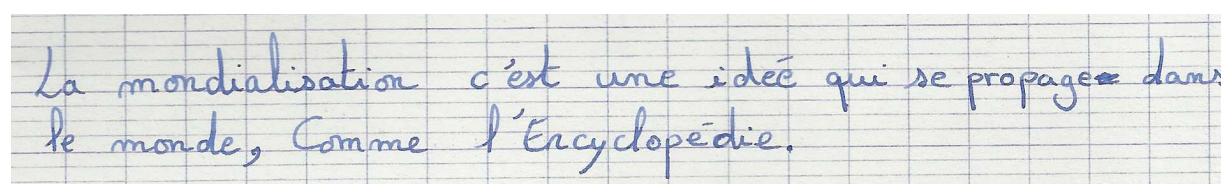 La mondialisation c'est une ideé qui se propage dans
le monde, Comme l'Encyclopédie.